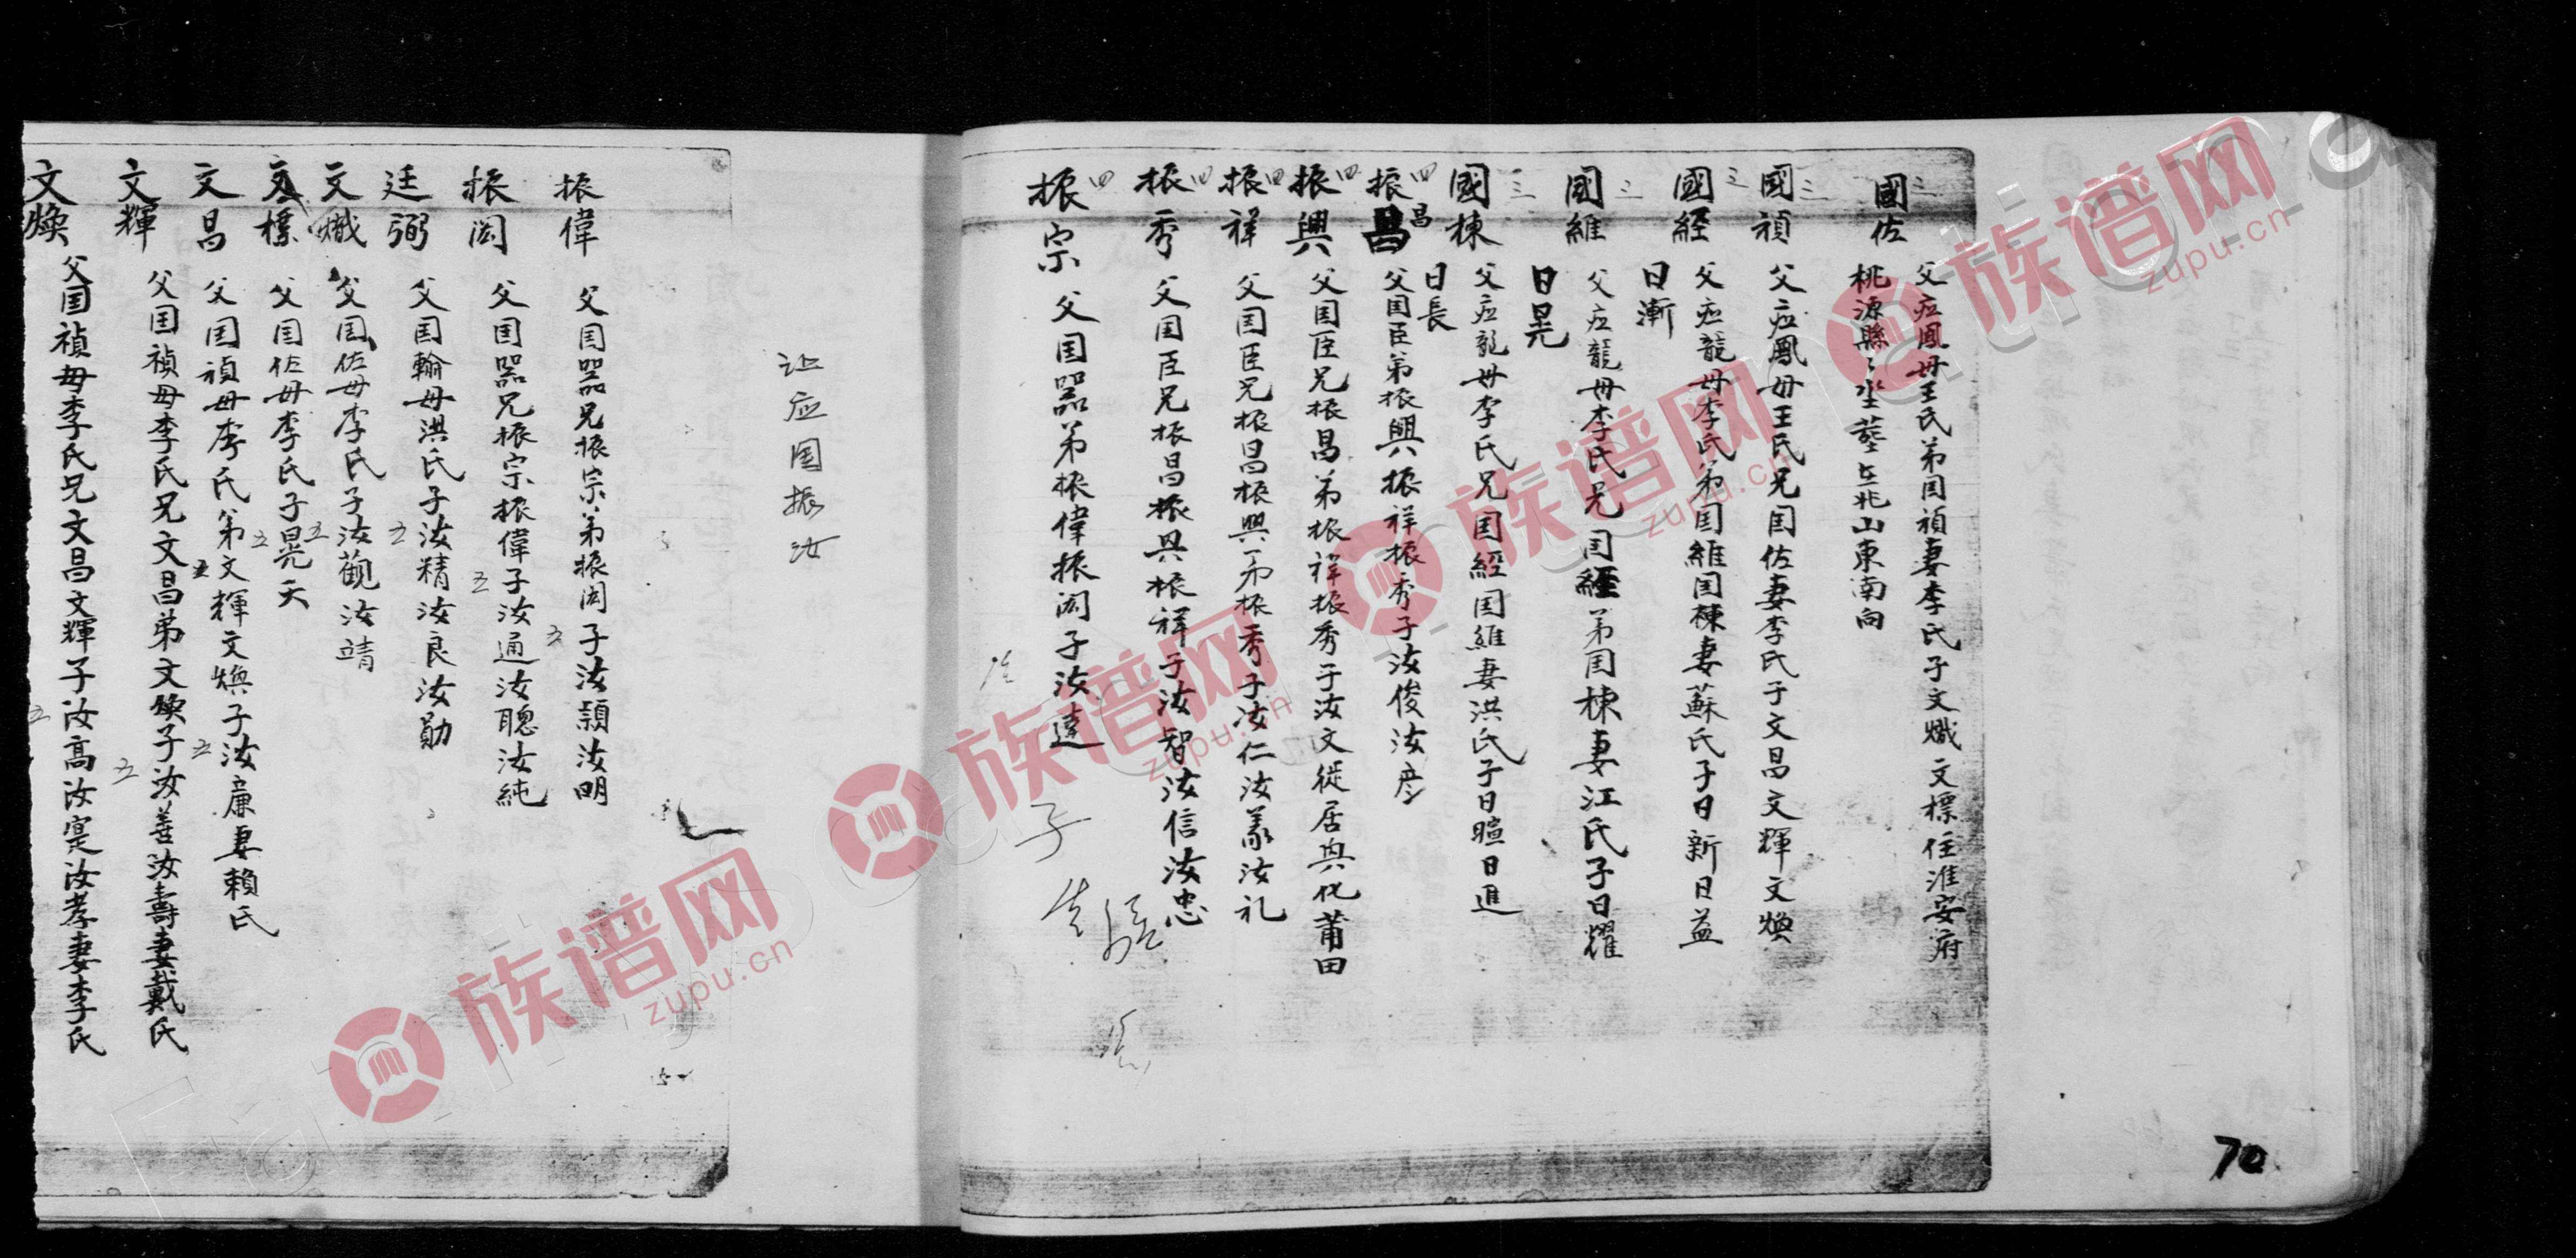 三 國佐 父应鳳母王氏弟国禎妻李氏子文熾文標任淮安府
桃源縣
山東南向
三 國禎 父应鳳母王氏兄国佐妻李氏子文昌文輝文煥
三 國經 父应龍母李氏弟国維国棟妻蘇氏子日新日益
日漸
三 國維 父应龍母李氏兄国經弟国棟妻江氏子日耀
日晃
三 國棟 父应龍母李氏兄国經国維妻洪氏子日暄日進
日長
四 振昌 昌 父国臣弟振興振祥振秀子汝俊汝彦
四 振興 父国臣兄振昌弟振祥振秀子汝文徙居興化莆田
四 振祥 父国臣兄振昌振興弟振秀子汝仁汝義汝礼
四 振秀 父国臣兄振昌振興振祥子汝智汝信汝忠
四 振宗 父国器弟振偉振閎子汝達
子
让应国振汝
振偉 父国器兄振宗弟振閎子汝穎汝明
五
振閎 父国器兄振宗振偉子汝通汝聰汝純
五
廷弼 父国翰母洪氏子汝精汝良汝勛
五
文熾 父国佐母李氏子汝觀汝靖
五
文標 父国佐母李氏子晃夭
五
文昌 父国禎母李氏弟文輝文煥子汝廉妻賴氏
五
文輝 父国禎母李氏兄文昌弟文煥子汝善汝壽妻戴氏
五
文煥 父国禎母李氏兄文昌文輝子汝高汝寔汝孝妻李氏
五
70
族谱网
zupu.cn
族谱网
zupu.cn
族谱网
zupu.cn
族谱网
zupu.cn